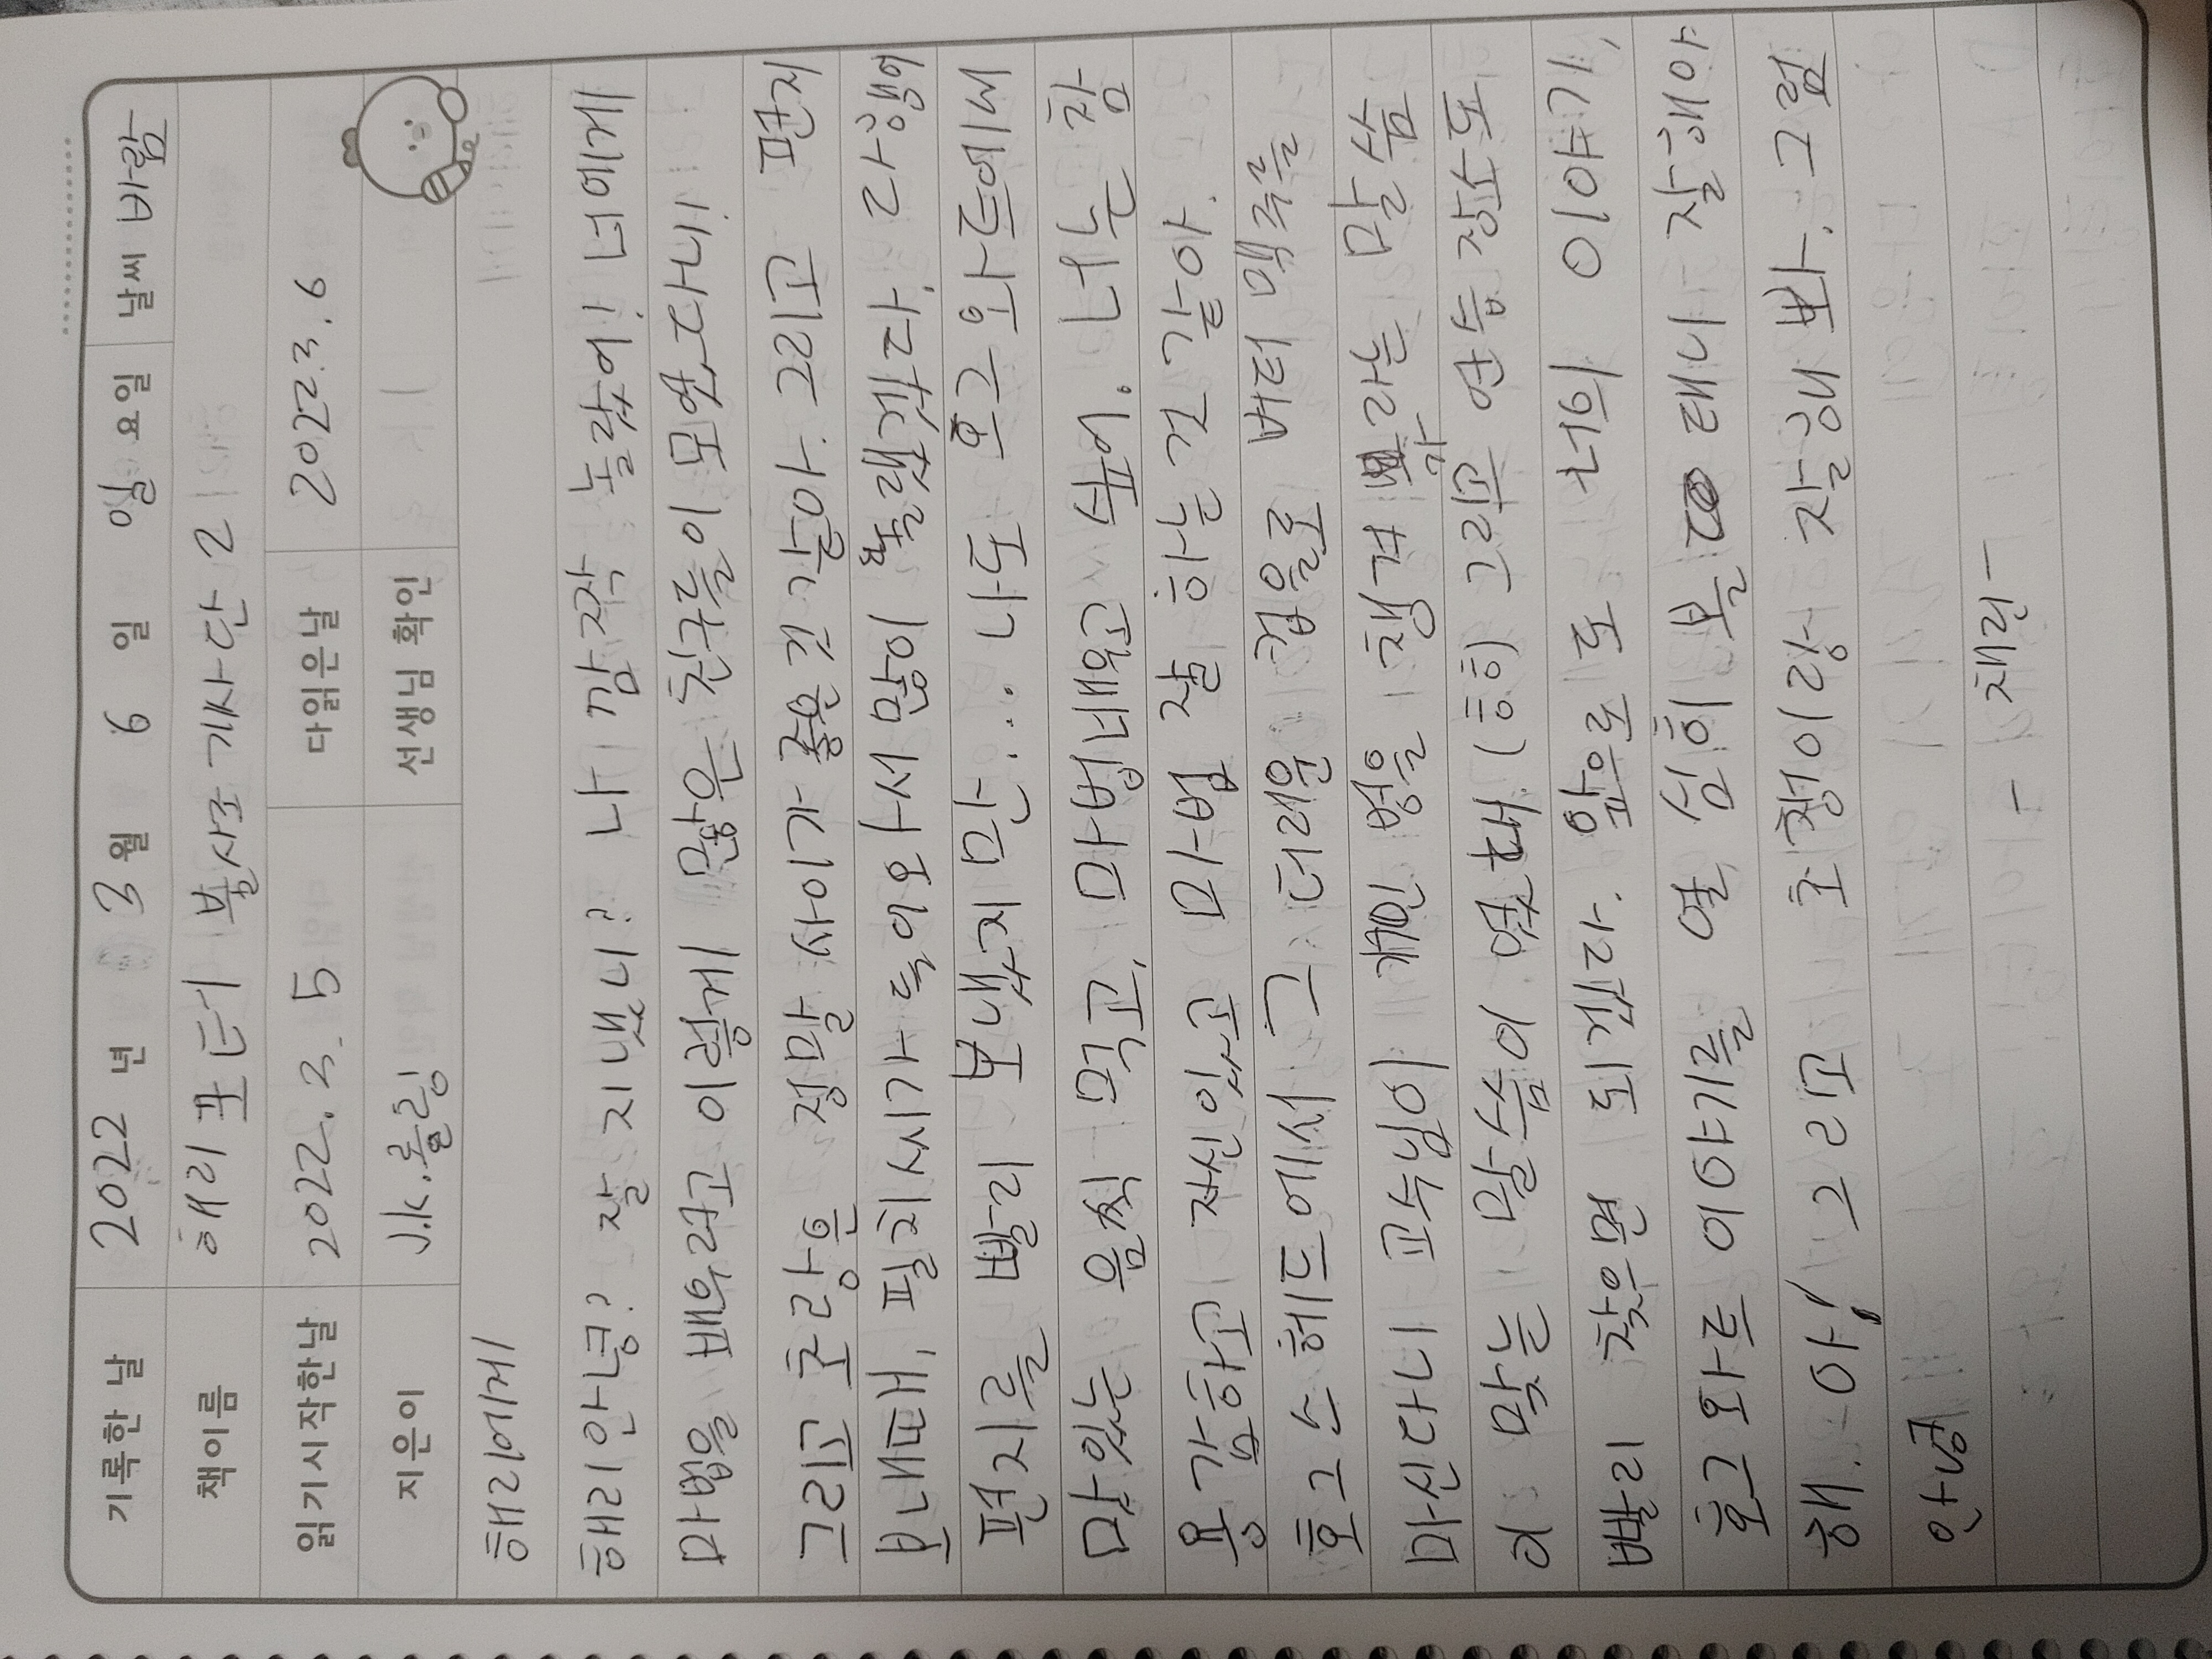 기록한 날 2022 년 3 월 6 일 일 요일 날씨 바람
책이름 해리포터 불사조 기사단 2
읽기시작한날 2022. 3. 5 다읽은날 2022.3.6
지은이 J.K.롤링 선생님 확인
해리에게
해리안녕? 잘 지냈니? 나 깜짝 놀랐어! 너에게
마법을 배우려고 이렇게 많은 친구들이 모였다니!
그리고 초랑은 정말 사이가 좋은것 같아. 그리고 편지
보내때, 필치씨가 들어와서 많이 놀랬겠다. 다행이
편지를 빨리 보냈지만... 나도 호그와트에서
맛있는 음식 먹고, 마법배우고 싶어. 너는 참
용감하고 자신있고 마법 잘 하는 것 같아.
호그스 헤드에서 그 더러운 컵을로 버터 맥주를
마신다니 교수님이 개인 컵을 챙겨 가라는 말씀
이 맞는 말씀이 였네. (흐흐) 그리고 연습 장소도
빨리 찾으면 되겠다. 앞으로 도 너의 이야기,
호그와트 이야기를 열심히 볼 테니 잘해야
해. 아! 그리고 초챙이랑 잘해 봐. 그럼
안녕
- 채린 -